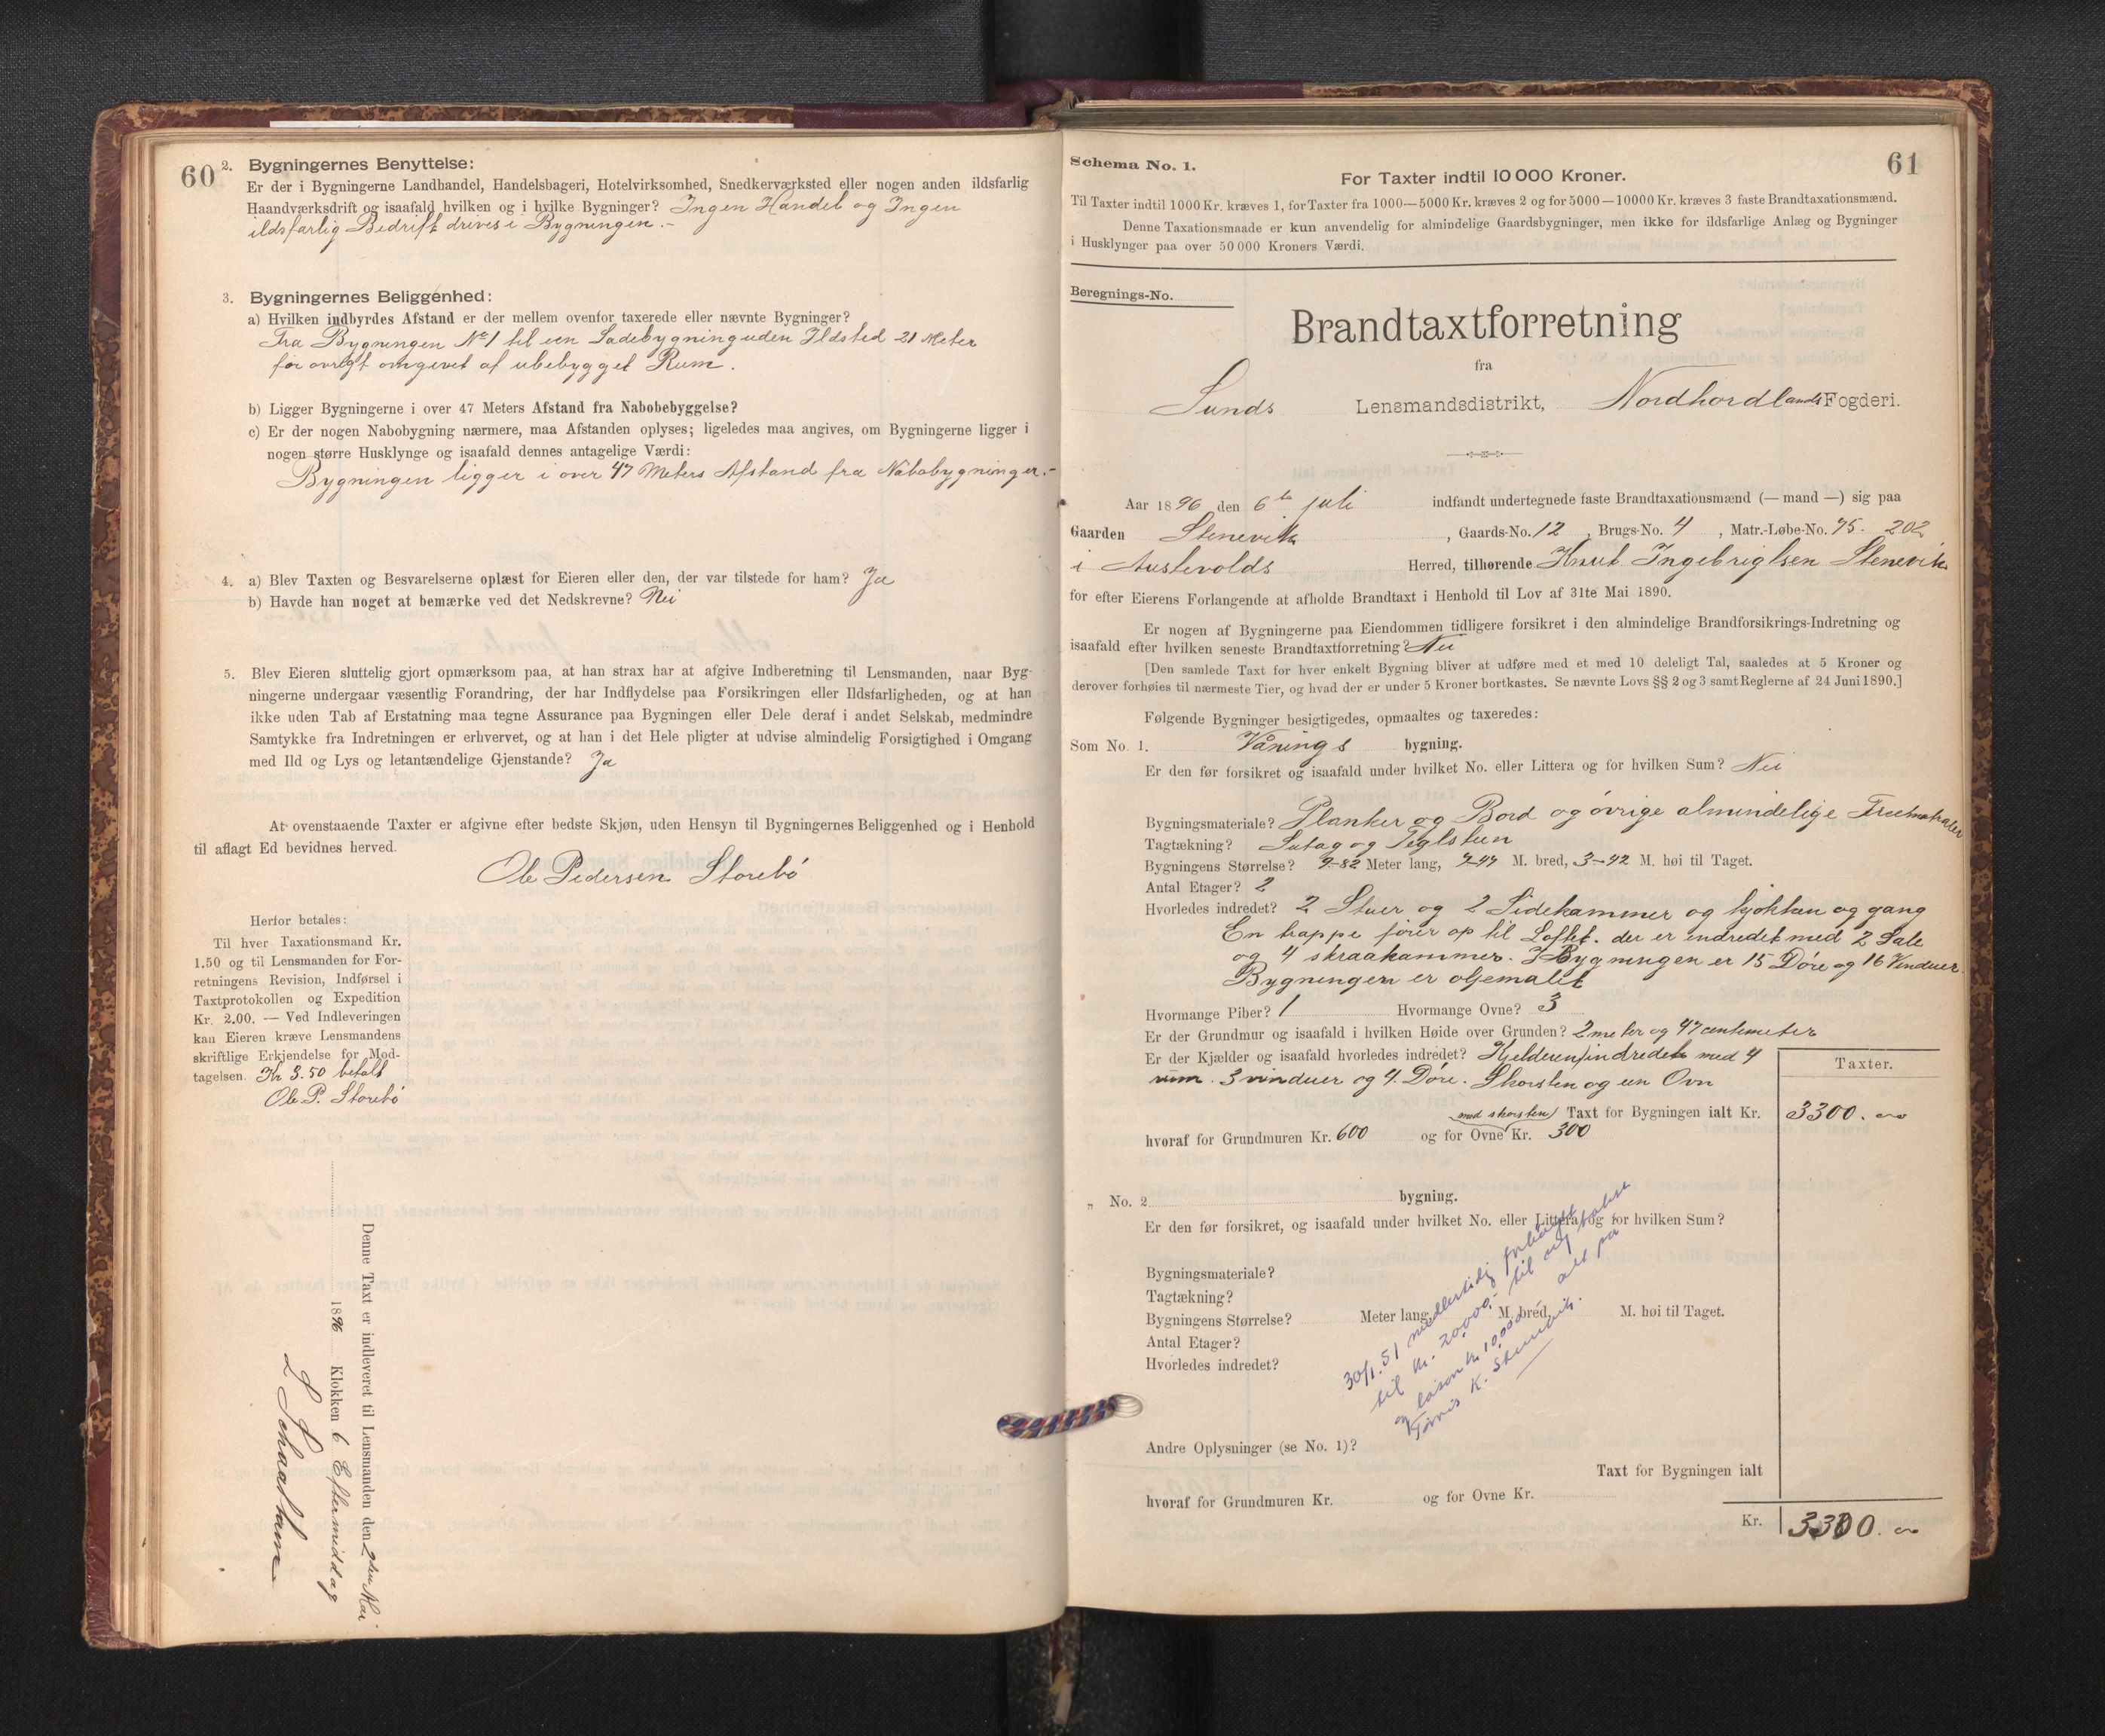 60
2. Bygningernes Benyttelse:
Er der i Bygningerne Landhandel, Handelsbageri, Hotelvirksomhed, Snedkerværksted eller nogen anden ildsfarlig
Haandværksdrift og isaafald hvilken og i hvilke Bygninger? Ingen Handel og Ingen
ildsfarlig Bedrift drives i Bygningen.-
3. Bygningernes Beliggenhed:
a) Hvilken indbyrdes Afstand er der mellem ovenfor taxerede eller nævnte Bygninger?
Fra Bygningen No 1 til een Ladebygning uden Ildsted 21 Meter
for øvrigt omgivet af ubebygget Rum.
b) Ligger Bygningerne i over 47 Meters Afstand fra Nabobebyggelse?
c) Er der nogen Nabobygning nærmere, maa Afstanden oplyses; ligeledes maa angives, om Bygningerne ligger i
nogen større Husklynge og isaafald dennes antagelige Værdi:
Bygningen ligger i over 47 Meters Afstand fra Nabobygninger.-
4. a) Blev Taxten og Besvarelserne oplæst for Eieren eller den, der var tilstede for ham? Ja
b) Havde han noget at bemærke ved det Nedskrevne? Nei
5. Blev Eieren sluttelig gjort opmærksom paa, at han strax har at afgive Indberetning til Lensmanden, naar Byg-
ningerne undergaar væsentlig Forandring, der har Indflydelse paa Forsikringen eller Ildsfarligheden, og at han
ikke uden Tab af Erstatning maa tegne Assurance paa Bygningen eller Dele deraf i andet Selskab, medmindre
Samtykke fra Indretningen er erhvervet, og at han i det Hele pligter at udvise almindelig Forsigtighed i Omgang
med Ild og Lys og letantændelige Gjenstande? Ja
At ovenstaaende Taxter er afgivne efter bedste Skjøn, uden Hensyn til Bygningernes Beliggenhed og i Henhold
til aflagt Ed bevidnes herved.
Ole Pedersen Storebö
Herfor betales:
Til hver Taxationsmand Kr.
1.50 og til Lensmanden for For-
retningens Revision, Indførsel i
Taxtprotokollen og Expedition
Kr. 2.00. — Ved Indleveringen
kan Eieren kræve Lensmandens
skriftlige Erkjendelse for Mod-
tagelsen. Kr 3.50 betalt
Ole P. Storebö
Denne Taxt er indleveret til Lensmanden den 2den Mai
1896 Klokken 6 Eftermiddag
Schaathun
Schema No. 1.
61
For Taxter indtil 10 000 Kroner.
Til Taxter indtil 1000 Kr. kræves 1, for Taxter fra 1000—5000 Kr. kræves 2 og for 5000—10000 Kr. kræves 3 faste Brandtaxationsmænd.
Denne Taxationsmaade er kun anvendelig for almindelige Gaardsbygninger, men ikke for ildsfarlige Anlæg og Bygninger
i Husklynger paa over 50 000 Kroners Værdi.
Beregnings-No.
Brandtaxtforretning
fra
Sunds Lensmandsdistrikt, Nordhordlands Fogderi.
Aar 1896 den 6te juli indfandt undertegnede faste Brandtaxationsmænd (— mand —) sig paa
Gaarden Stenevik, Gaards-No. 12, Brugs-No. 4, Matr.-Løbe-No. 75. 202
i Austevolds Herred, tilhørende Knut Ingebrigtsen Stenevik
for efter Eierens Forlangende at afholde Brandtaxt i Henhold til Lov af 31te Mai 1890.
Er nogen af Bygningerne paa Eiendommen tidligere forsikret i den almindelige Brandforsikrings-Indretning og
isaafald efter hvilken seneste Brandtaxtforretning? Nei
[Den samlede Taxt for hver enkelt Bygning bliver at udføre med et med 10 deleligt Tal, saaledes at 5 Kroner og
derover forhøies til nærmeste Tier, og hvad der er under 5 Kroner bortkastes. Se nævnte Lovs §§ 2 og 3 samt Reglerne af 24 Juni 1890.]
Følgende Bygninger besigtigedes, opmaaltes og taxeredes:
Som No. 1. Vånings bygning.
Er den før forsikret og isaafald under hvilket No. eller Littera og for hvilken Sum? Nei
Bygningsmateriale? Planker og Bord og övrige almindelige
Tagtækning? Sutag og Teglsteen
Bygningens Størrelse? 9-82 Meter lang, 7-47 M. bred, 3-42 M. høi til Taget.
Antal Etager? 2
Hvorledes indredet? 2 Stuer og 2 Sidekammer og kjökken og gang
En trappe förer op til Loftet. der er indredet med 2 Sale
og 4 skraakammer. I Bygningen er 15 Döre og 16 Vinduer
Bygningen er oljemalet
Hvormange Piber? 1 Hvormange Ovne? 3
Er der Grundmur og isaafald i hvilken Høide over Grunden? 2 meter og 47 centimeter
Er der Kjælder og isaafald hvorledes indredet? Kjelderen indredet med 4
rum. 3 vinduer og 4. Döre. Skorsten og een Ovn
Taxter.
med skorsten Taxt for Bygningen ialt Kr. 3300.
hvoraf for Grundmuren Kr. 600 og for Ovne Kr. 300
„ No. 2 bygning.
Er den før forsikret, og isaafald under hvilket No. eller Littera og for hvilken Sum?
Bygningsmateriale?
Tagtækning?
Bygningens Størrelse? Meter lang, M. bred, M. høi til Taget.
Antal Etager?
Hvorledes indredet?
30/1. 51 midlertidig forhöiet
til kr. 20000.- til og
og kr. 10.000 alt på
K. Stenevik.
Andre Oplysninger (se No. 1)?
Taxt for Bygningen ialt
hvoraf for Grundmuren Kr. og for Ovne Kr.
Kr. 3300.